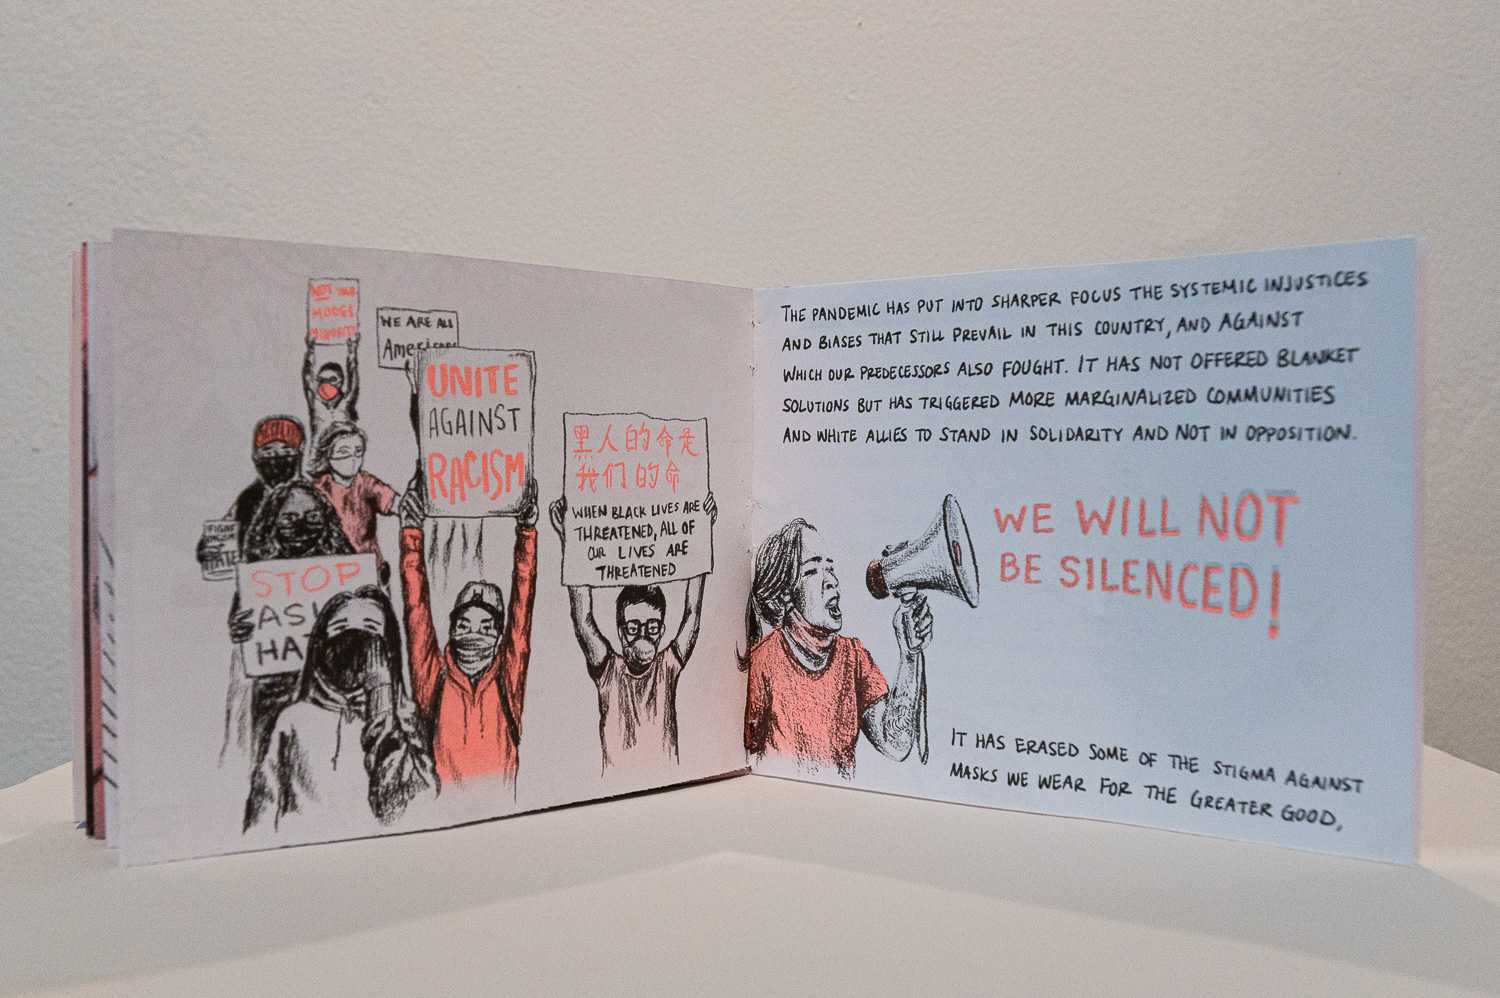 NOT YOUR
MODEL
MINORITY
WE ARE ALL
Americans
UNITE
AGAINST
RACISM
黑人的命是
我们的命
WHEN BLACK LIVES ARE
THREATENED, ALL OF
OUR LIVES ARE
THREATENED
FIGHT
HATE
STOP
ASI
HA
THE PANDEMIC HAS PUT INTO SHARPER FOCUS THE SYSTEMIC INJUSTICES
AND BIASES THAT STILL PREVAIL IN THIS COUNTRY, AND AGAINST
WHICH OUR PREDECESSORS ALSO FOUGHT. IT HAS NOT OFFERED BLANKET
SOLUTIONS BUT HAS TRIGGERED MORE MARGINALIZED COMMUNITIES
AND WHITE ALLIES TO STAND IN SOLIDARITY AND NOT IN OPPOSITION.
WE WILL NOT
BE SILENCED!
IT HAS ERASED SOME OF THE STIGMA AGAINST
MASKS WE WEAR FOR THE GREATER GOOD,